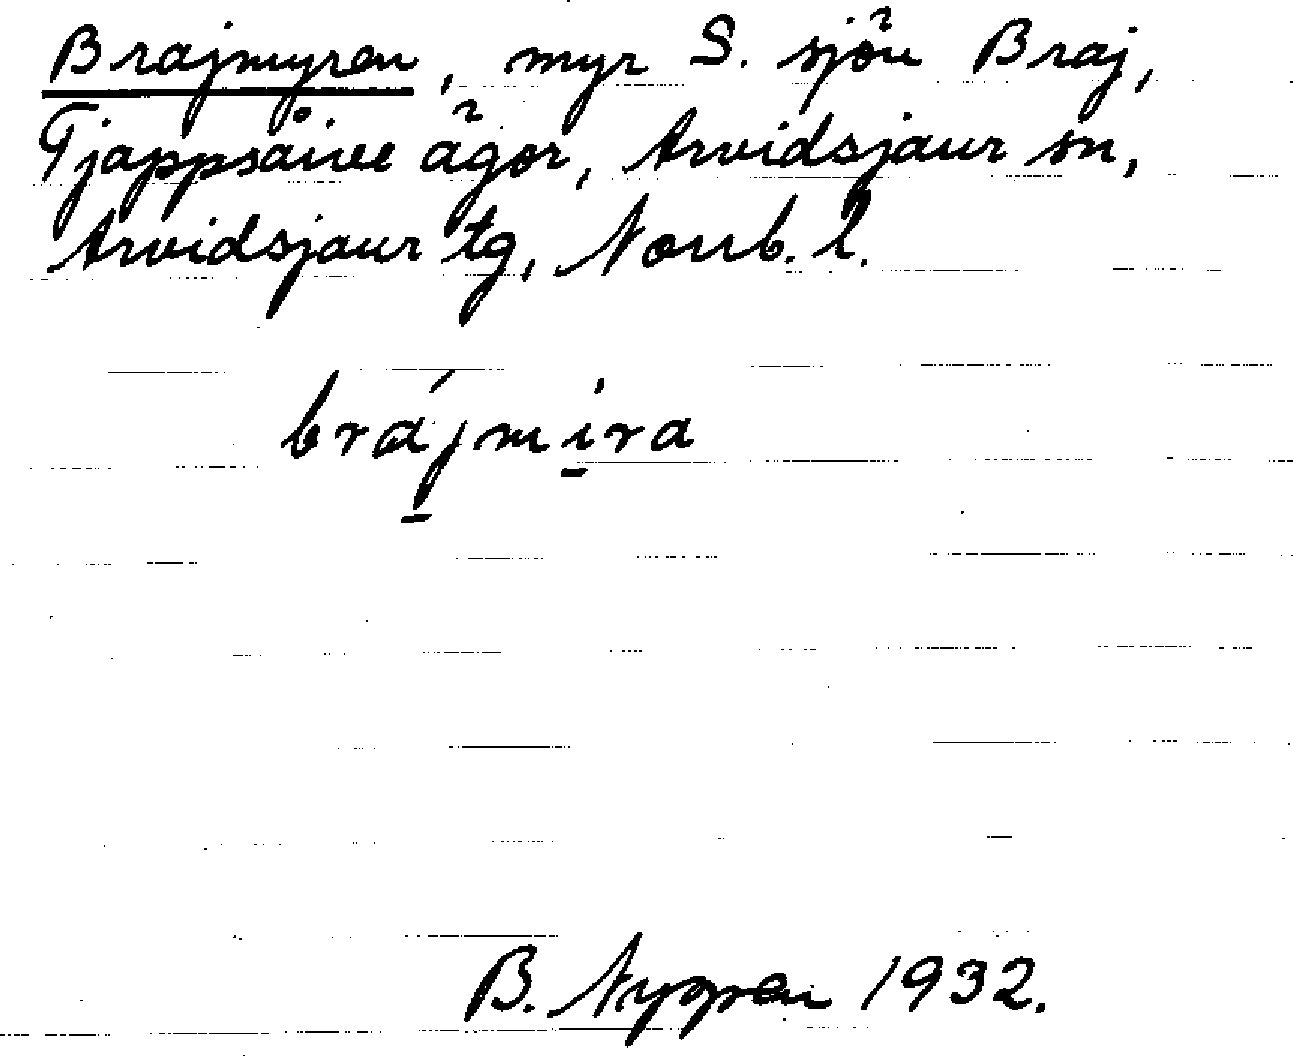 Brajmyren, myr S. sjön Braj,
Tjappsåive ägor, Arvidsjaur sn,
Arvidsjaur tg, Norrb. l.
brájmira
B. Nygren 1932.